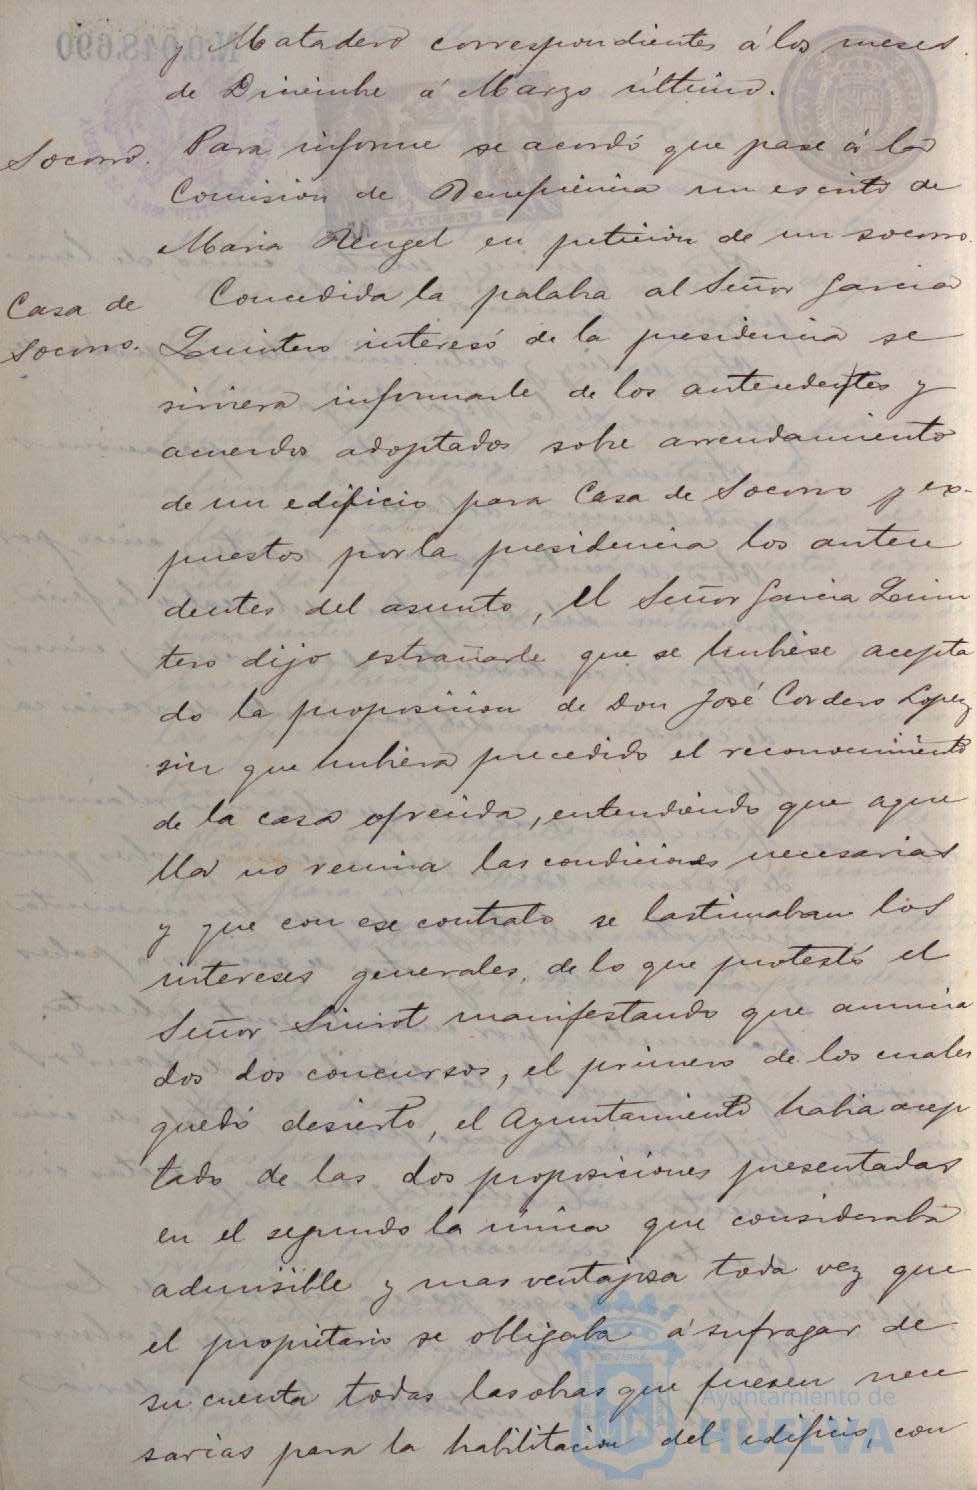 y Matadero correspondientes á los meses
de Diciembre á Marzo último.
Socorro. Para informe se acordó que pase á la
Comision de Beneficencia un escrito de
Maria Rengel en peticion de un socorro.
Casa de Socorro.
Concedida la palabra al Señor Garcia
Quintero interesó de la presidencia se
sirviera informarle de los antecedentes y
acuerdos adoptados sobre arrendamiento
de un edificio para Casa de Socorro y ex-
puestos por la presidencia los antece
dentes del asunto, el Señor Garcia Quin
tero dijo estrañarle que se hubiese acepta
do la proposicion de Don José Cordero Lopez
sin que hubiera precedido el reconocimiento
de la casa ofrecida, entendiendo que aque
lla no reunia las condiciones necesarias
y que con ese contrato se lastimaban los
intereses generales, de lo que protestó el
Señor Siurot manifestando que anuncia
dos dos concursos, el primero de los cuales
quedó desierto, el Ayuntamiento habia acep
tado de las dos proposiciones presentadas
en el segundo la única que consideraba
admisible y mas ventajosa toda vez que
el propietario se obligaba á sufragar de
su cuenta todas las obras que fuesen nece
sarias para la habilitacion del edificio, con
Nº 0.048.690
Ayuntamiento de
HUELVA